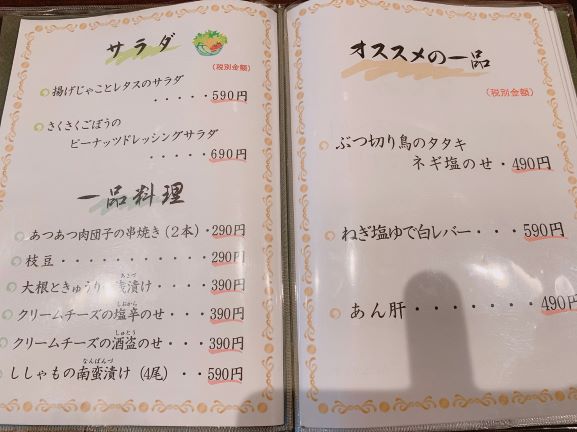 サラダ
(税別金額)
揚げじゃことレタスのサラダ
・・・・・590円
さくさくごぼうの
ピーナッツドレッシングサラダ
・・・・・690円
一品料理
あつあつ肉団子の串焼き(2本)・290円
枝豆・・・・・・・・・・・290円
大根ときゅうり 浅漬け・・・・390円
クリームチーズの塩辛のせ・・・390円
クリームチーズの酒盗のせ・・・390円
ししゃもの南蛮漬け(4尾)・・590円
オススメの一品
(税別金額)
ぶつ切り鳥のタタキ
ネギ塩のせ・490円
ねぎ塩ゆで白レバー・・・590円
あん肝・・・・・・・・490円